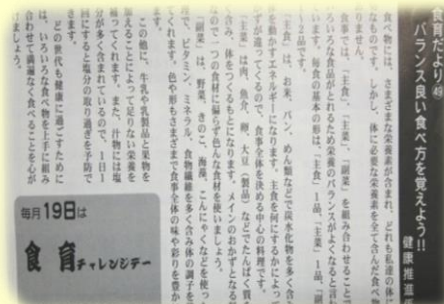 食育だより㊾
バランス良い食べ方を覚えよう!!
健康推進
食べ物には、さまざまな栄養素が含まれ、どれも私達の体に
なものです。しかし、体に必要な栄養素を全て含んだ食べ
りません。
食事では、「主食」、「主菜」、「副菜」を組み合わせること
ろいろな食品がとれるため栄養のバランスがよくなると言わ
います。毎食の基本の形は、「主食」1品、「主菜」1品、「
～2品です。
主食」は、お米、パン、めん類などで炭水化物を多く含
を動かすエネルギーになります。主食を何にするかによって
ずが違ってくるので、食事全体を決める中心の料理です。
主菜」は肉、魚介、卵、大豆（製品）などでたんぱく質
含み、体をつくるもとになります。メインのおかずとなる
なので一つの食材に偏らず色んな食材を使いましょう。
「副菜」は、野菜、きのこ、海藻、こんにゃくなどを使っ
理で、ビタミン、ミネラル、食物繊維を多く含み体の調子を
くれます。色や形もさまざまで食事全体の味や彩りを豊か
この他に、牛乳や乳製品と果物を
加えることによって足りない栄養を
補ってくれます。また、汁物には塩
分が多く含まれているので、1日1
にすると塩分の取り過ぎを予防で
どの世代も健康に過ごすために
は、いろいろな食べ物を上手に組み
合わせて満遍なく食べることを心が
けましょう。
毎月19日は
食育チャレンジデー